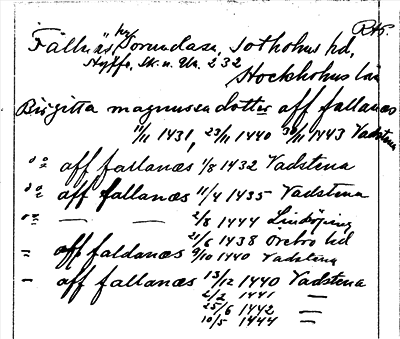 RAP.
Fållnäs hg Sorunda sn, Sotholms hd,
Nyffo, Sk. u. Utr. 232
Stockholms län
Birgitta magnusse dotter aff fallanæs
11/11 1431, 23/11 1440 30/11 1443 Vadstena
do aff fallanæs 1/8 1432 Vadstena
do aff fallanæs 11/4 1435 Vadstena
do — — 2/8 1444 Linköping
= aff faldanæs 21/6 1438 Örebro hd
9/10 1440 Vadstena
— aff fallanæs 13/12 1440 Vadstena
2/2 1441 —
25/6 1442 —
10/5 1444 —